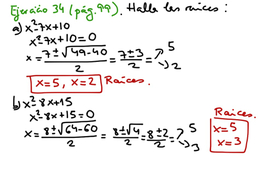 Ejercicio 34 (pág. 99). Halla las raíces:
a) x²-7x+10
x²-7x+10=0
x = (7±√(49-40))/2 = (7±3)/2 = 5, 2
x=5, x=2 Raíces.
b) x²-8x+15
x²-8x+15=0
x = (8±√(64-60))/2 = (8±√4)/2 = (8±2)/2 = 5, 3
Raíces.
x=5
x=3